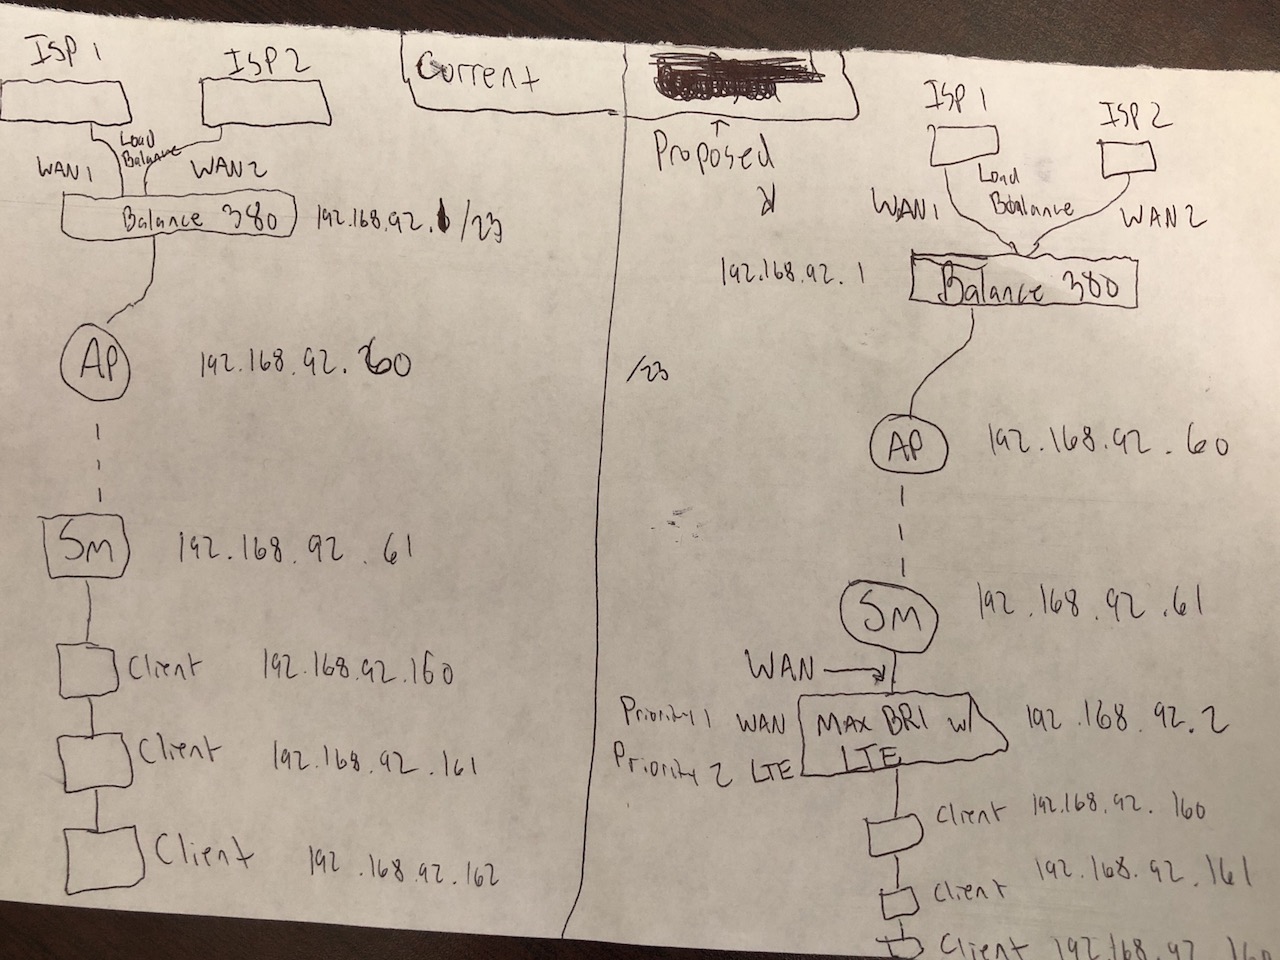 ISP 1
ISP 2
Load
Balance
WAN1
WAN2
Balance 380
192.168.92.1 /23
AP
192.168.92.60
SM
192.168.92.61
Client
192.168.92.160
Client
192.168.92.161
Client
192.168.92.162
Current
Proposed
ISP 1
ISP 2
Load
Balance
WAN1
WAN2
192.168.92.1
Balance 380
/23
AP
192.168.92.60
SM
192.168.92.61
WAN
Priority 1 WAN
Priority 2 LTE
MAX BR1 w/
LTE
192.168.92.2
Client 192.168.92.160
Client 192.168.92.161
Client 192.168.92.160